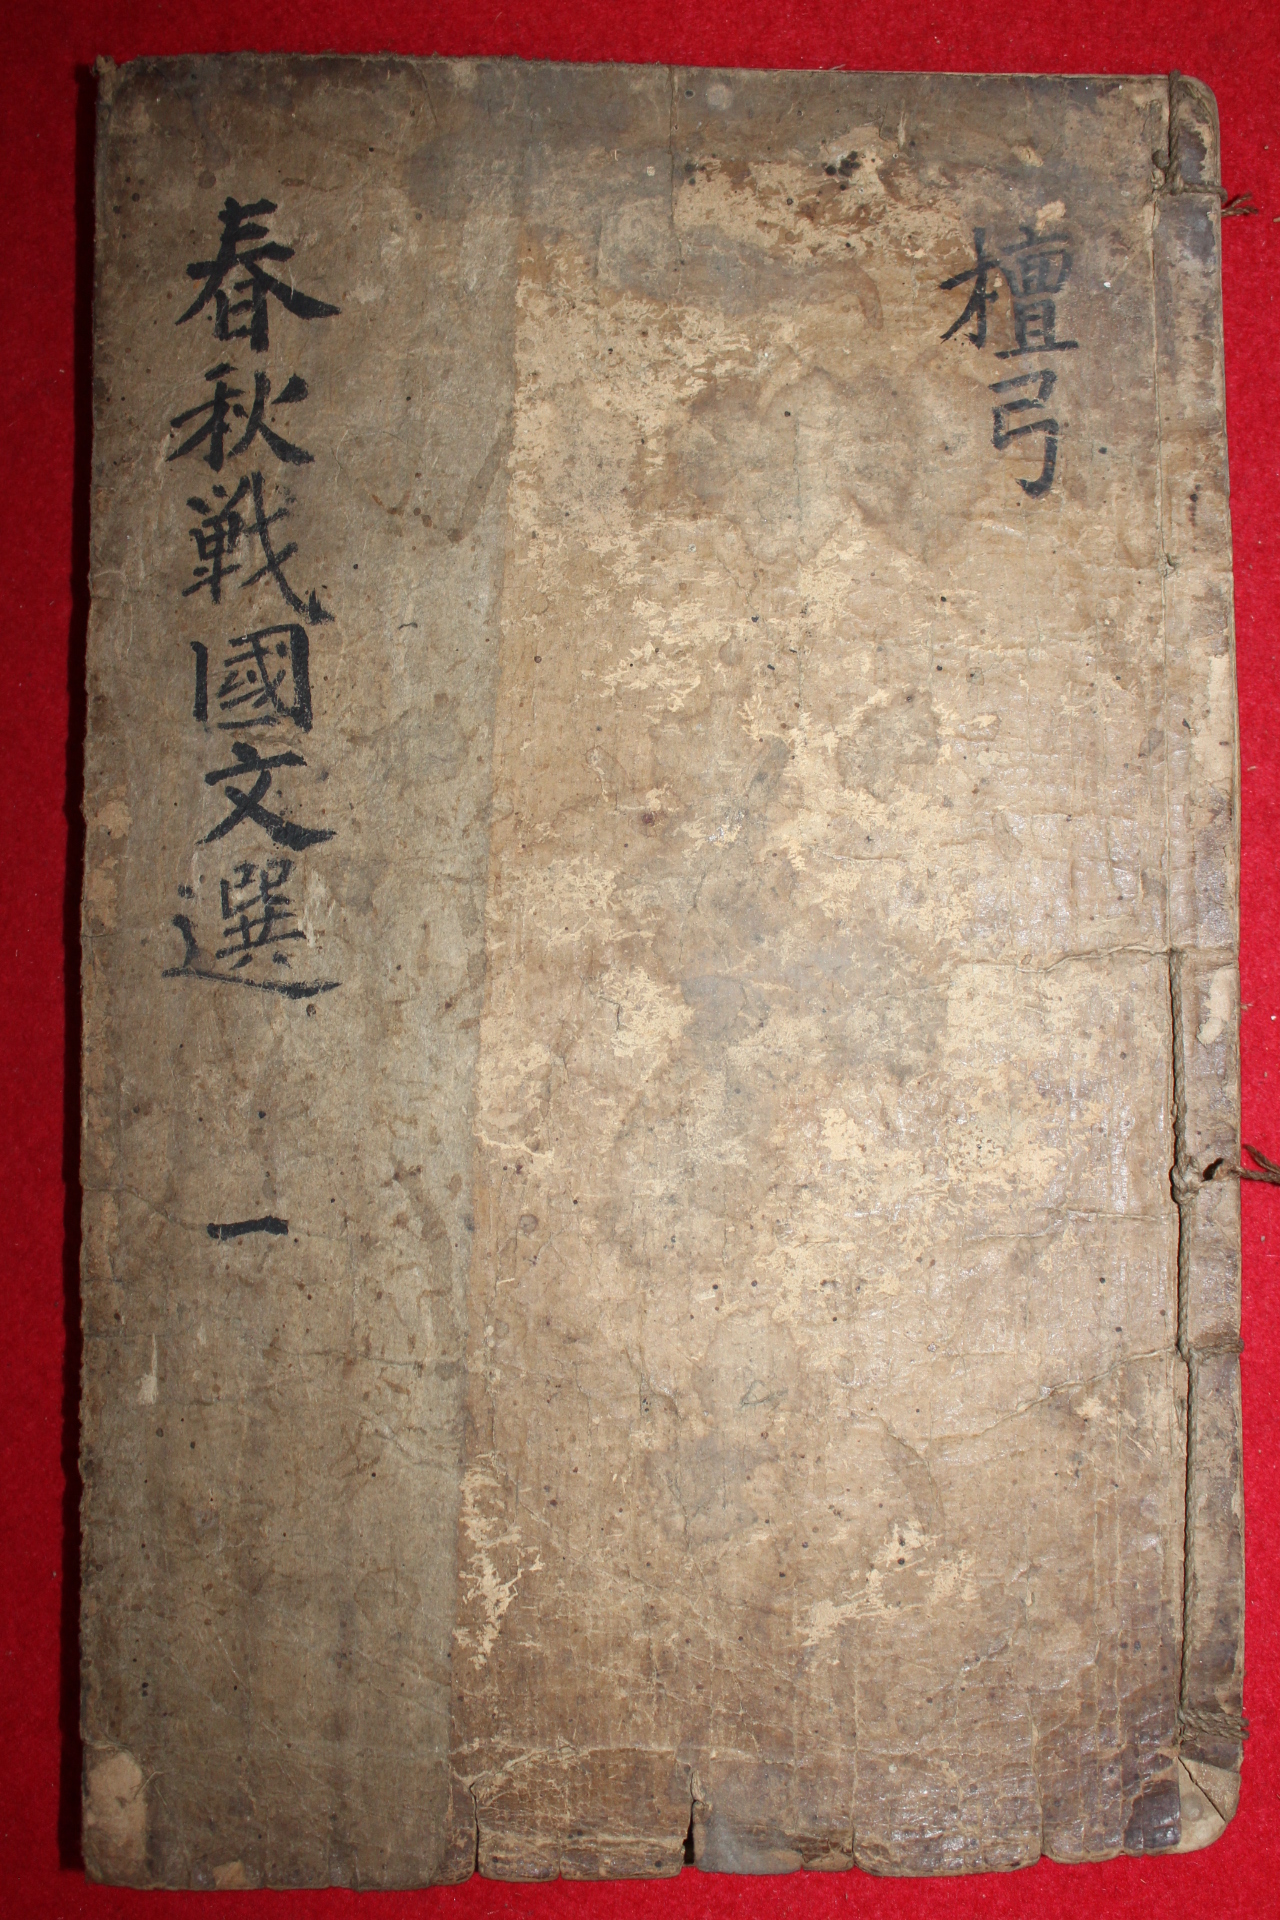 檀弓
春秋戦國文選 一